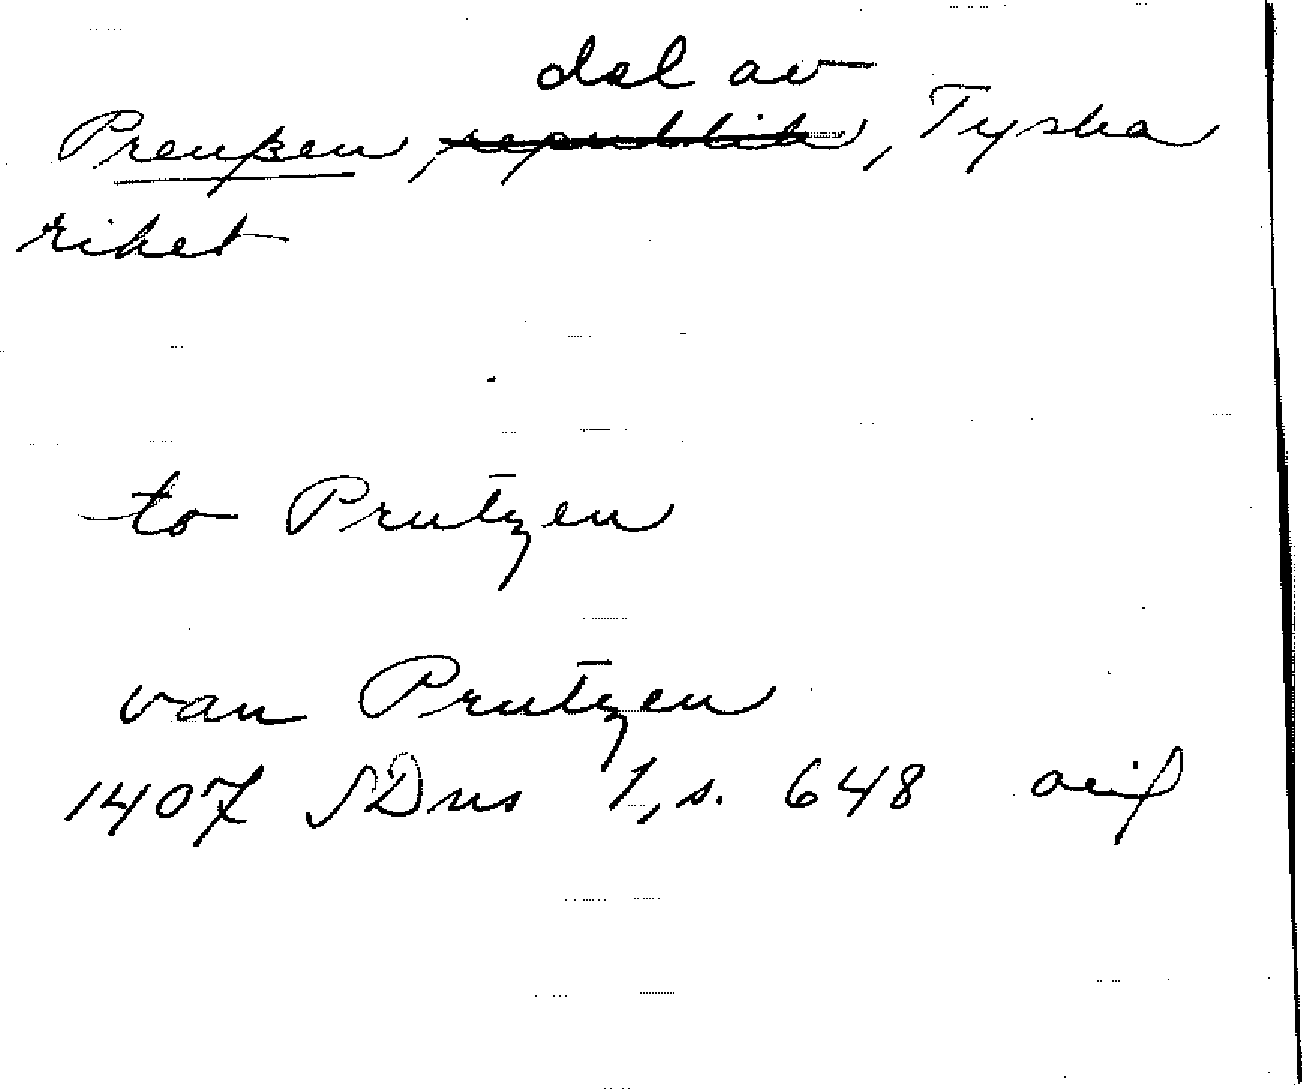 del av
Preußen, republik, Tyska
riket
to Prutzen
van Prutzen
1407 SDns 1, s. 648 avif